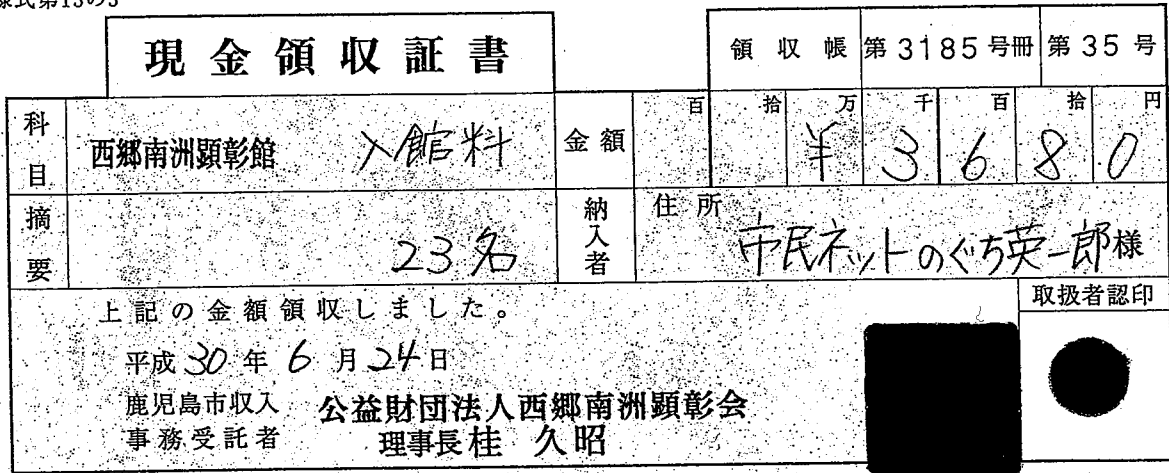 様式第13の3
現金領収証書
領収帳 第3185号冊 第35号
科目 西郷南洲顕彰館 入館料 金額 百 拾 万 千 百 拾 円
¥3680
摘要 23名 納入者 住所
市民ネットのぐち英一郎様
上記の金額領収しました。
取扱者認印
平成30年6月24日
鹿児島市収入
事務受託者
公益財団法人西郷南洲顕彰会
理事長 桂 久昭